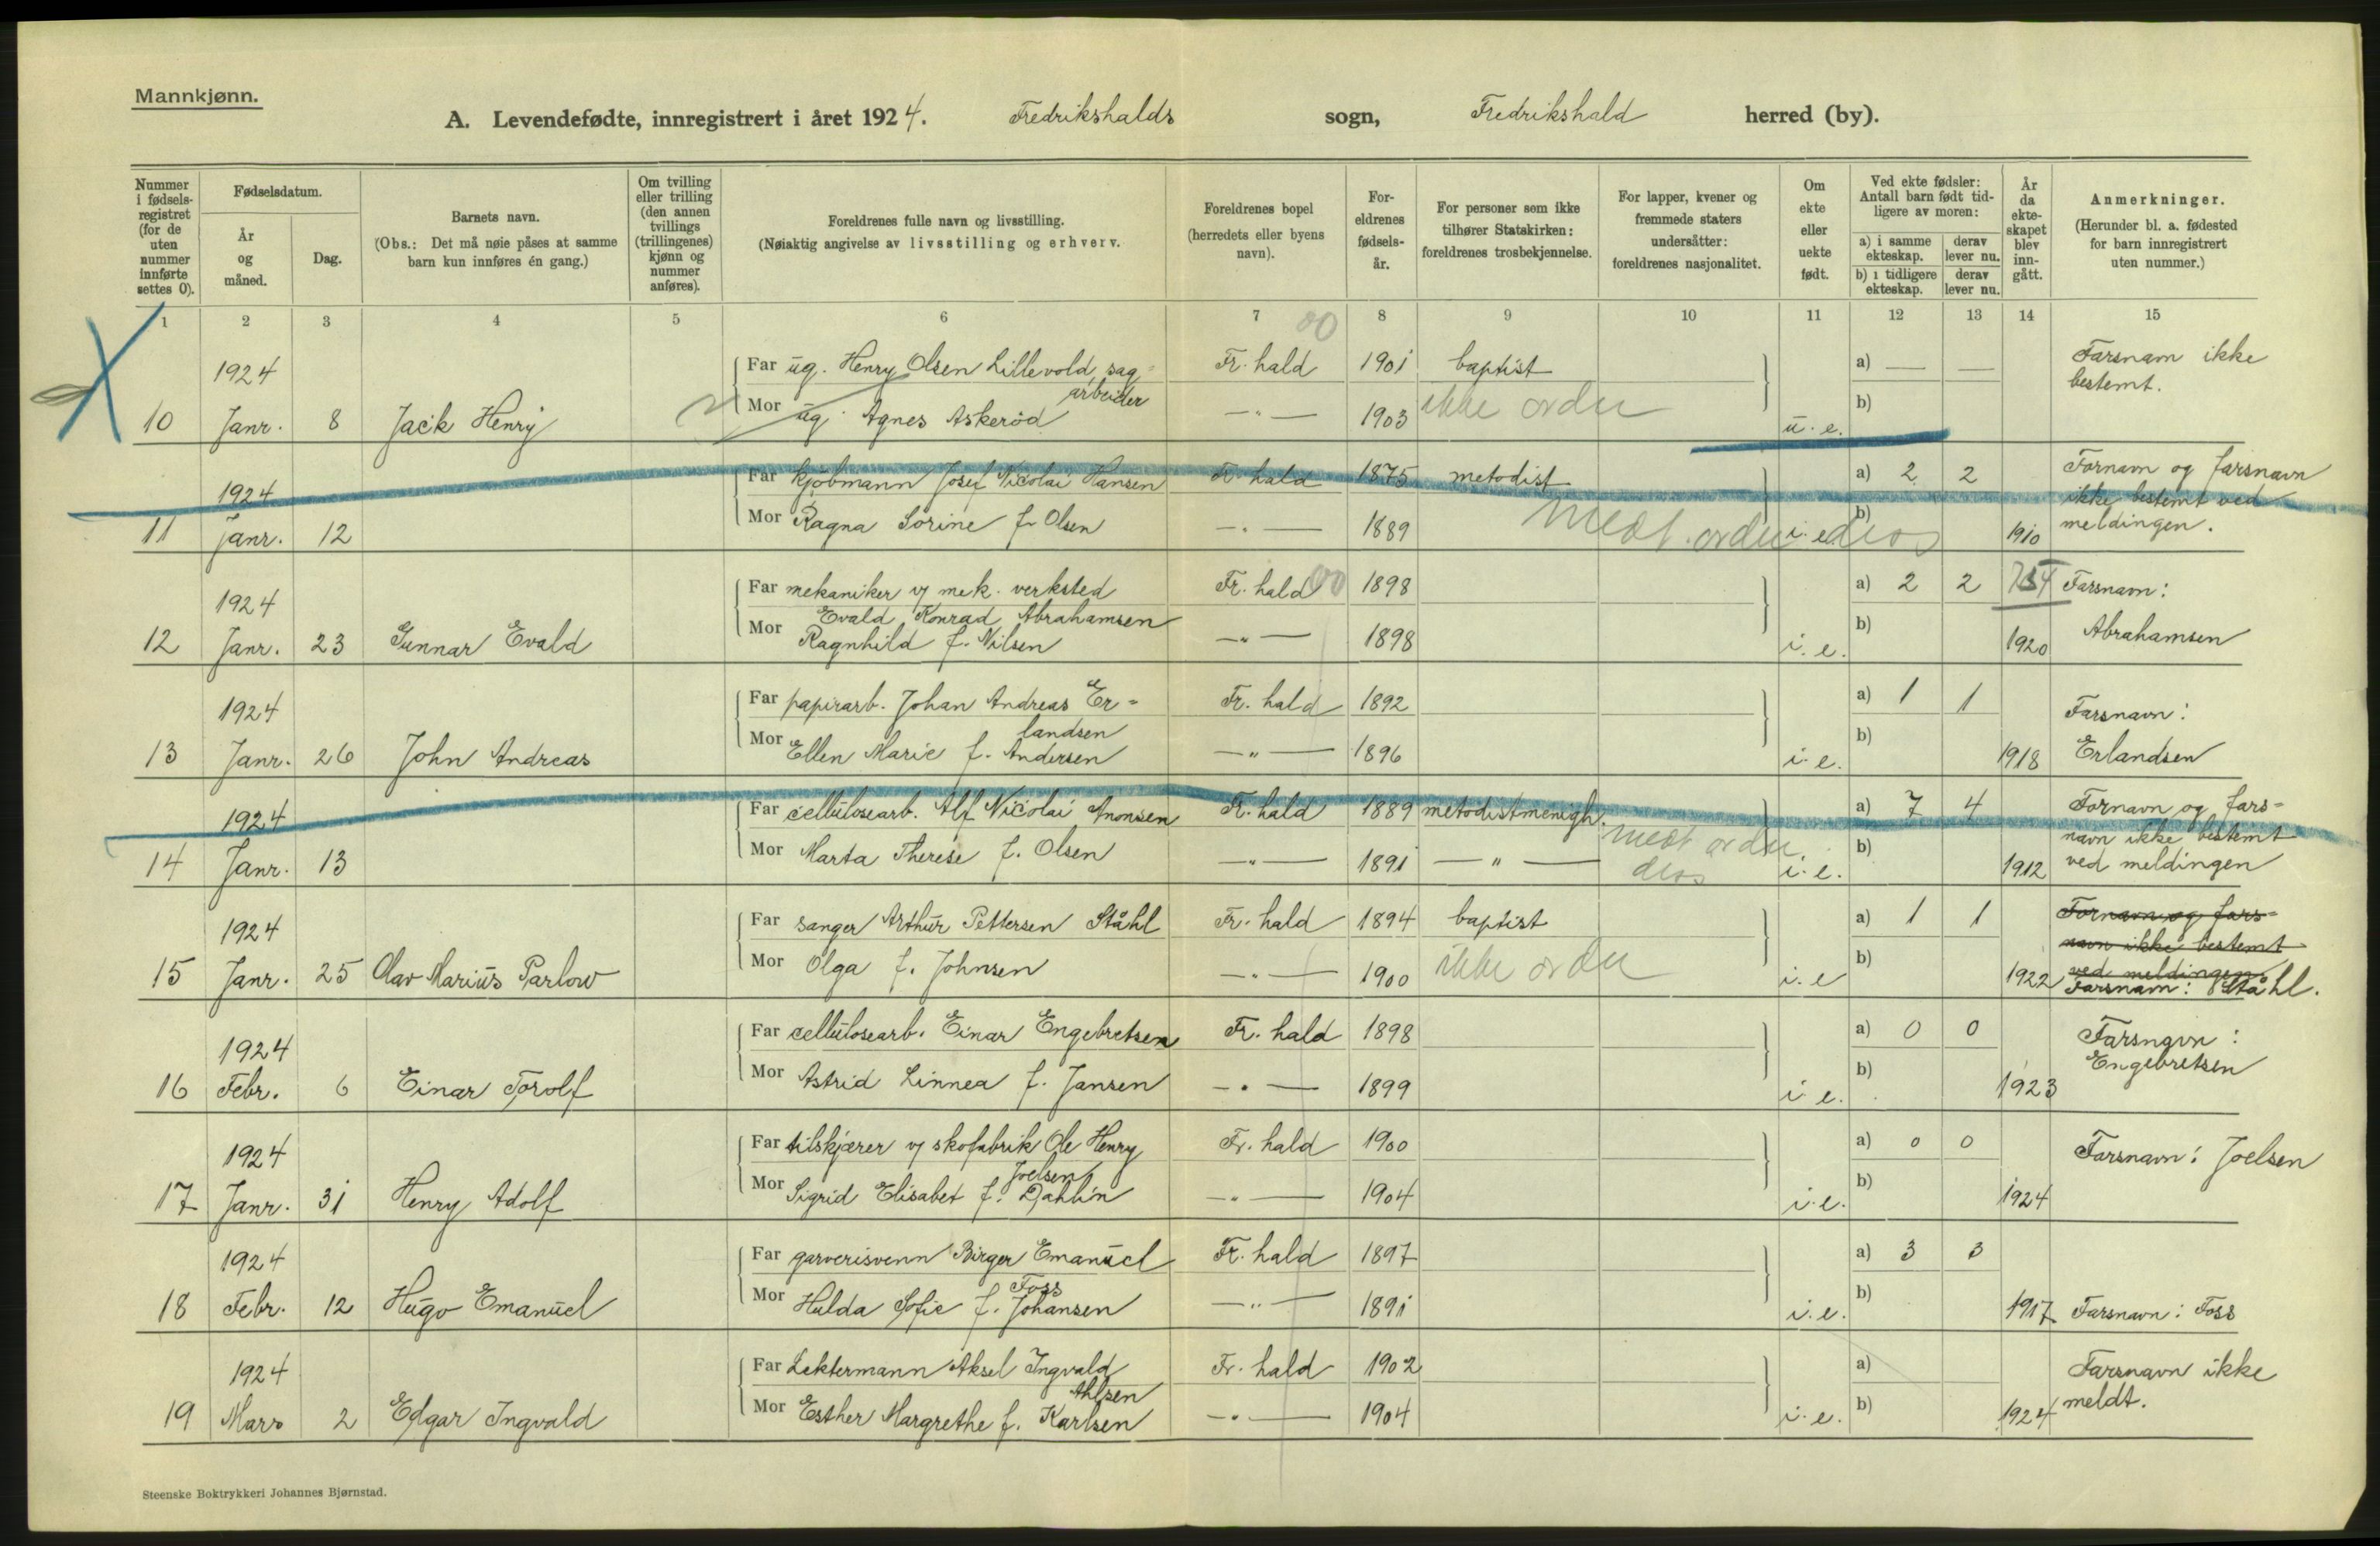 Mannkjønn.
A. Levendefødte, innregistrert i året 1924. Fredrikshalds sogn, Fredrikshald herred (by).
Nummer i fødselsregistret (for de uten nummer innførte settes 0).
Fødselsdatum.
År og måned.
Dag.
Barnets navn.
(Obs.: Det må nøie påses at samme barn kun innføres én gang.)
Om tvilling eller trilling (den annen tvillings (trillingenes) kjønn og nummer anføres).
Foreldrenes fulle navn og livsstilling.
(Nøiaktig angivelse av livsstilling og erhverv.
Foreldrenes bopel (herredets eller byens navn).
Foreldrenes fødselsår.
For personer som ikke tilhører Statskirken: foreldrenes trosbekjennelse.
For lapper, kvener og fremmede staters undersåtter: foreldrenes nasjonalitet.
Om ekte eller uekte født.
Ved ekte fødsler: Antall barn født tidligere av moren:
a) i samme ekteskap. derav lever nu.
b) i tidligere ekteskap. derav lever nu.
År da ekteskapet blev inngått.
Anmerkninger.
(Herunder bl. a. fødested for barn innregistrert uten nummer.)
1 2 3 4 5 6 7 8 9 10 11 12 13 14 15
00
1924 Far ug. Henry Olsen Lillevold, sag= Fr. hald 1901 baptist a) — — Farsnavn ikke
arbeider bestemt.
10 Janr. 8 Jack Henry Mor ug. Agnes Askeröd —"— 1903 ikke ordu u. e. b)
1924 Far kjöbmann Josef Nicolai Hansen Fr. hald 1875 metodist a) 2 2 Fornavn og farsnavn
ikke bestemt ved
11 Janr. 12 Mor Ragna Sorine f. Olsen —"— 1889 i. e. b) 1910 meldingen.
1924 Far mekaniker v/ mek. verksted Fr. hald 00 1898 a) 2 2 Farsnavn:
Evald Konrad Abrahamsen
12 Janr. 23 Gunnar Evald Mor Ragnhild f. Nilsen —"— 1898 i. e. b) 1920 Abrahamsen
1924 Far papirarb. Johan Andreas Er= Fr. hald 1892 a) 1 1 Farsnavn:
landsen
13 Janr. 26 John Andreas Mor Ellen Marie f. Andersen —"— 1896 i. e. b) 1918 Erlandsen
1924 Far cellulosearb. Alf Nicolai Anonsen Fr. hald 1889 metodistmenigh. a) 7 4 Fornavn og fars=
navn ikke bestemt
14 Janr. 13 Mor Marta Therese f. Olsen —"— 1891 —"— i. e. b) 1912 ved meldingen
1924 Far sanger Arthur Pettersen Ståhl Fr. hald 1894 baptist a) 1 1 Fornavn og fars=
navn ikke bestemt
ved meldingen.
15 Janr. 25 Olav Marius Parlow Mor Olga f. Johnsen —"— 1900 ikke ordu i. e b) 1922 Farsnavn: Ståhl.
1924 Far cellulosearb. Einar Engebretsen Fr. hald 1898 a) 0 0 Farsnavn:
16 Febr. 6 Einar Torolf Mor Astrid Linnea f. Jansen —"— 1899 i. e. b) 1923 Engebretsen
1924 Far tilskjærer v/ skofabrik Ole Henry Fr. hald 1900 a) 0 0 Farsnavn: Joelsen
Joelsen
17 Janr. 31 Henry Adolf Mor Sigrid Elisabet f. Dahlin —"— 1904 i. e. b) 1924
1924 Far garverisvenn Birger Emanuel Fr. hald 1897 a) 3 3
Foss
18 Febr. 12 Hugo Emanuel Mor Hulda Sofie f. Johansen —"— 1891 i. e. b) 1917 Farsnavn: Foss
1924 Far Lektermann Aksel Ingvald Fr. hald 1902 a) Farsnavn ikke
Ahlsen meldt.
19 Mars 2 Edgar Ingvald Mor Esther Margrethe f. Karlsen —"— 1904 i. e. b) 1924
Steenske Boktrykkeri Johannes Bjørnstad.